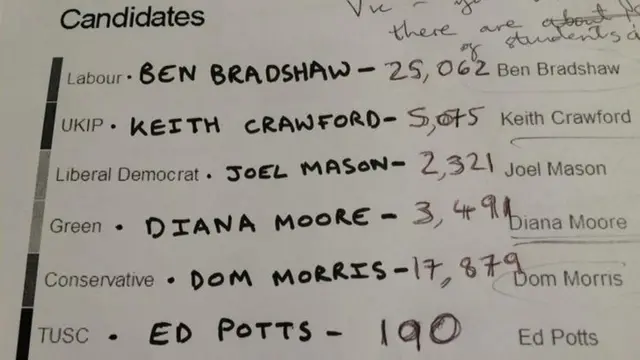 Candidates
there are about
of students
Labour • BEN BRADSHAW - 25,062 Ben Bradshaw
UKIP • KEITH CRAWFORD - 5,075 Keith Crawford
Liberal Democrat • JOEL MASON - 2,321 Joel Mason
Green • DIANA MOORE - 3,491 Diana Moore
Conservative • DOM MORRIS - 17,879 Dom Morris
TUSC • ED POTTS - 190 Ed Potts